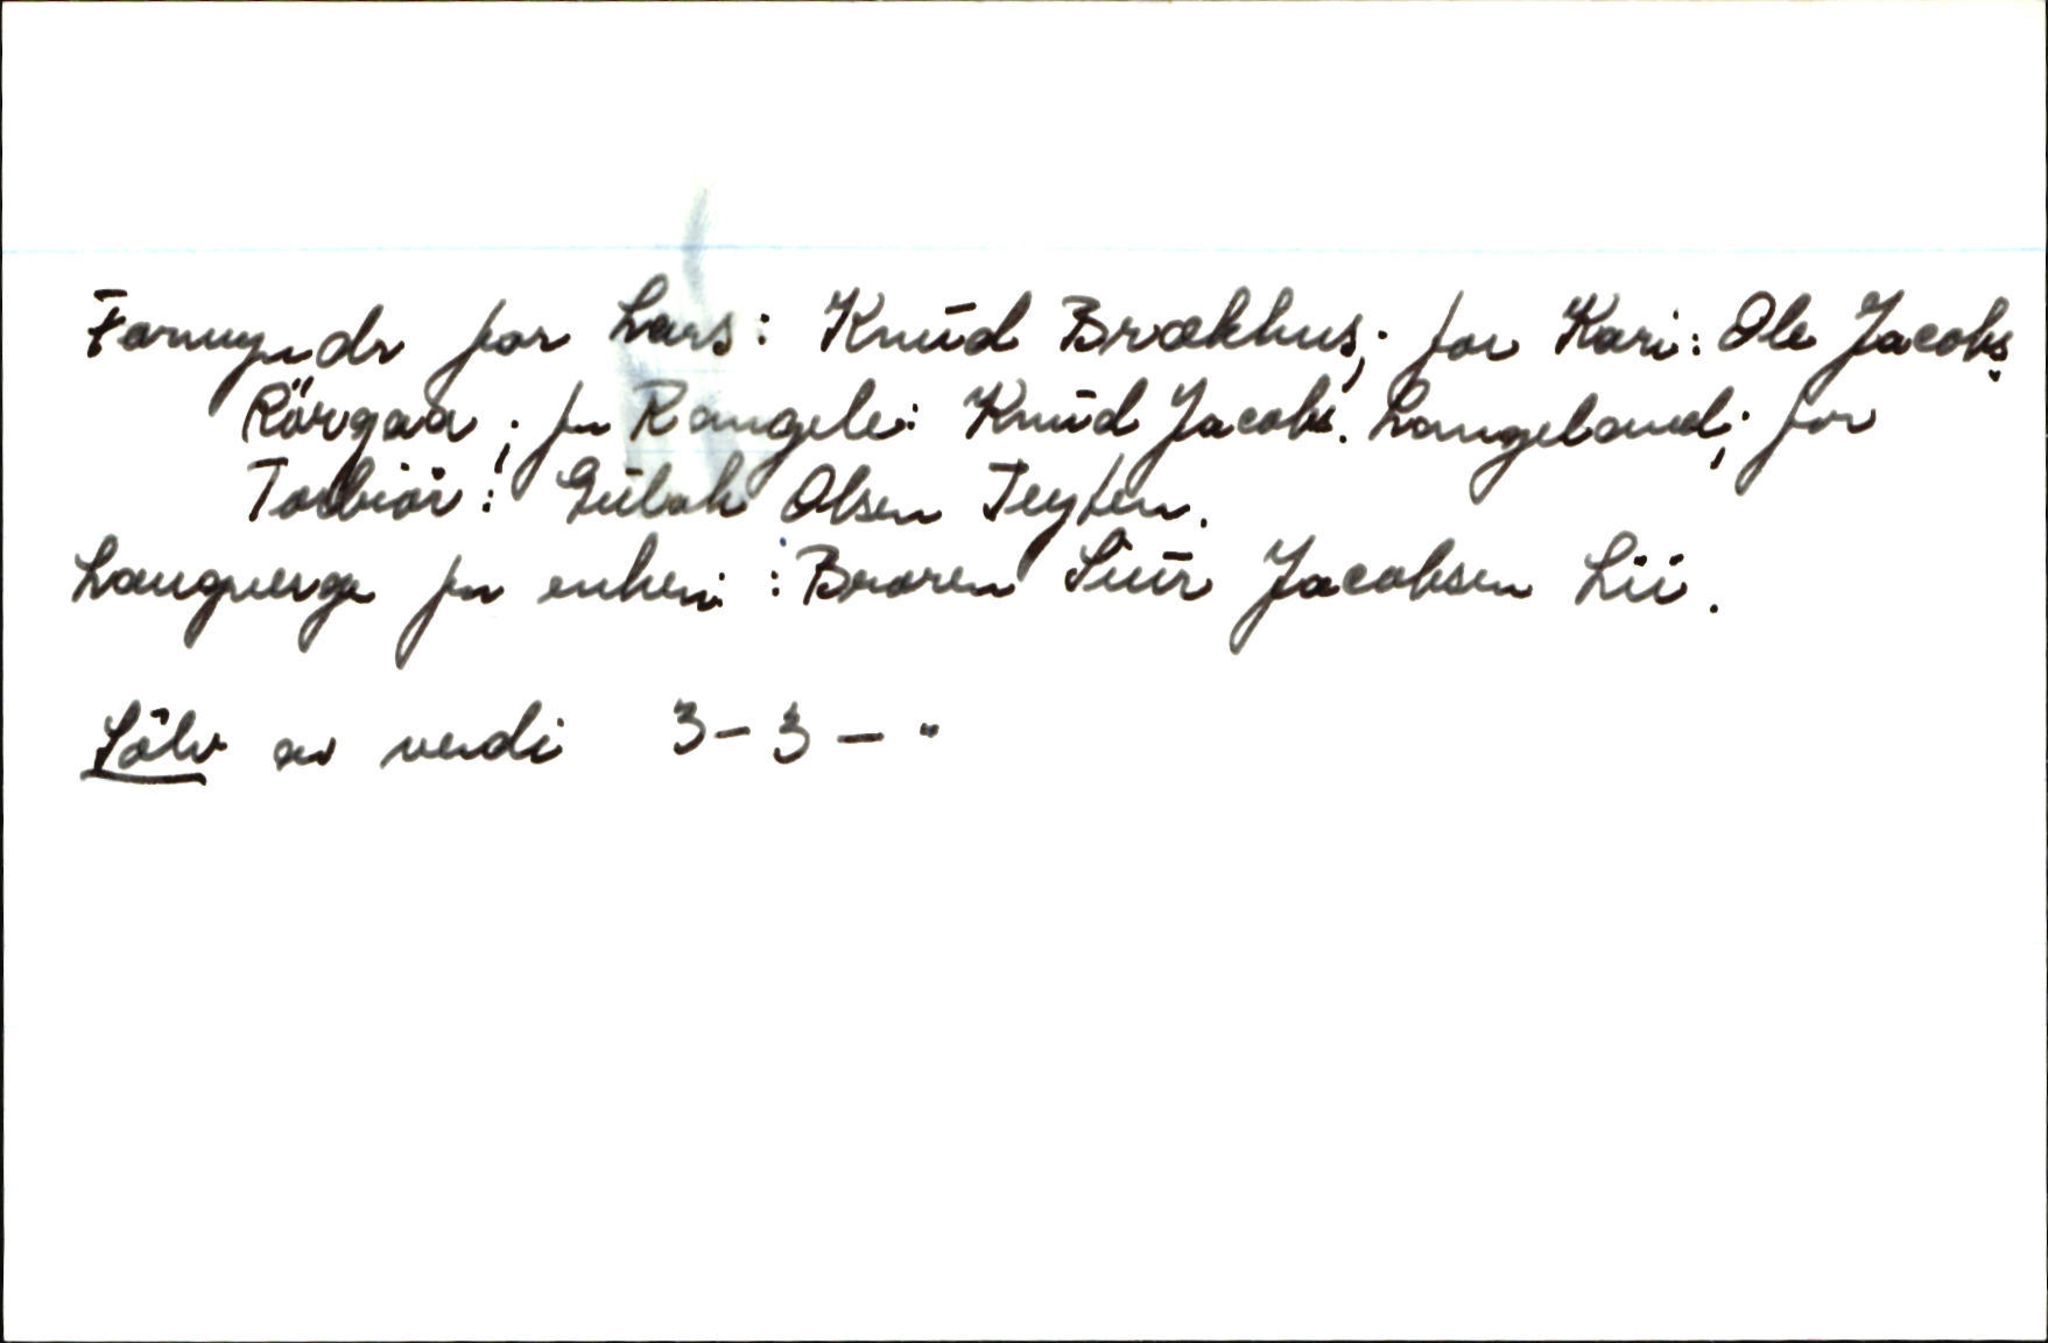 Formyndr for Lars: Knud Brækhus; for Kari: Ole Jacobs.
Rörgaa; for Rangele: Knud Jacobs. Langeland; for
Torbiör: Gulak Olsen Teyten.
Laugverge for enken: Broren Siur Jacobsen Lii.
Sölv av verdi 3-3-"